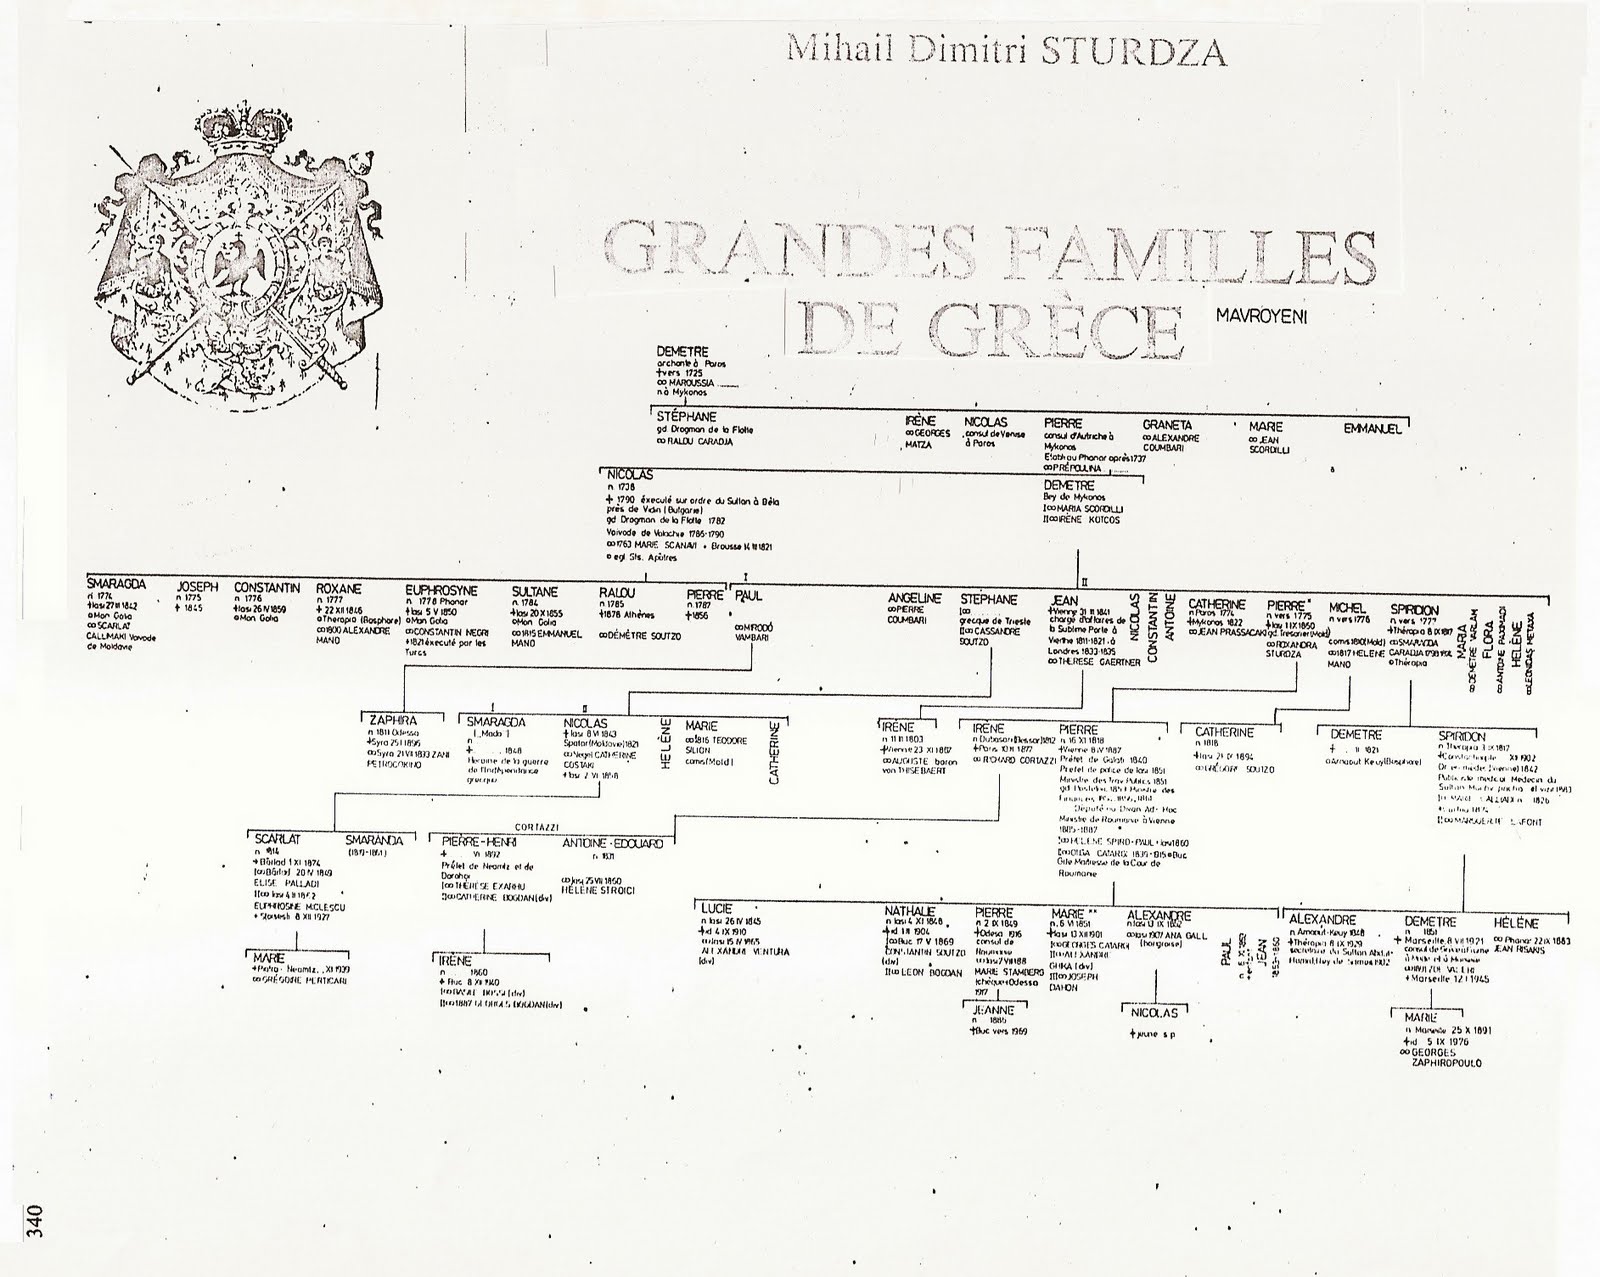 Mihail Dimitri STURDZA
GRANDES FAMILLES
DE GRÈCE
MAVROYENI
DEMETRE
archonte à Paros
+vers 1725
∞ MAROUSSIA
n à Mykonos
STÉPHANE
gd Drogman de la Flotte
∞ RALOU CARADJA
IRÈNE
∞ GEORGES
MATZA
NICOLAS
consul de Venise
à Paros
PIERRE
consul d'Autriche à
Mykonos
Etabli au Phanar après 1737
∞ PRÉPOULINA
GRANETA
∞ ALEXANDRE
COUMBARI
MARIE
∞ JEAN
SCORDILLI
EMMANUEL
NICOLAS
n 1738
+ 1790 éxecuté sur ordre du Sultan à Béla
près de Vidin (Bulgarie)
gd Drogman de la Flotte 1782
Voivode de Valachie 1786-1790
∞ 1763 MARIE SCANAVI + Brousse 14 III 1821
o egl Sts. Apôtres
DEMETRE
Bey de Mykonos
I ∞ MARIA SCORDILLI
II ∞ IRÈNE KOTCOS
I
II
SMARAGDA
n 1774
+Iasi 27 III 1842
o Mon Golia
∞ SCARLAT
CALLIMAKI Voivode
de Moldavie
JOSEPH
n 1775
+ 1845
CONSTANTIN
n 1776
+Iasi 26 IV 1859
o Mon Golia
ROXANE
n 1777
+ 22 XII 1846
o Therapia (Bosphore)
∞ 1800 ALEXANDRE
MANO
EUPHROSYNE
n 1778 Phanar
+ Iasi 5 V 1850
o Mon Golia
∞ CONSTANTIN NEGRI
+ 1821 éxecuté par les
Turcs
SULTANE
n 1784
+Iasi 20 X 1855
o Mon Golia
∞ 1815 EMMANUEL
MANO
RALOU
n 1785
+1878 Athènes
∞ DÉMÈTRE SOUTZO
PIERRE
n 1787
+1856
PAUL
∞ MIRODÓ
VAMBARI
ANGELINE
∞ PIERRE
COUMBARI
STEPHANE
I ∞
grecque de Trieste
II ∞ CASSANDRE
SOUTZO
JEAN
+Vienne 31 III 1841
chargé d'affaires de
la Sublime Porte à
Vienne 1811-1821 à
Londres 1833-1835
∞ THERESE GAERTNER
NICOLAS
CONSTANTIN
ANTOINE
CATHERINE
n Paros 1774
+Mykonos 1822
∞ JEAN PRASSACAKI
PIERRE*
n vers 1775
+Iasi 1 IX 1850
gd. Tresorier (Mold)
∞ ROXANDRA
STURDZA
MICHEL
n vers 1776
comis 1810 (Mold)
∞ 1817 HELENE
MANO
SPIRIDON
+Thérapia 8 IX 1817
∞ SMARAGDA
o Thérapia
MARIA
∞ DEMETRE VARLAM
FLORA
∞ ANTOINE PAXIMADI
HELENE
∞ LEONIDAS METAXA
ZAPHIRA
n 1811 Odessa
+Syra 25 I 1896
∞ Syra 21 VII 1833 ZANI
PETROCOKINO
I
SMARAGDA
(„Mado")
n
+ 1848
Heroine de la guerre
de l'Indépendance
grecque
II
NICOLAS
+ Iasi 8 VI 1843
Spatar (Moldavie) 1821
∞ Negel CATHERINE
COSTAKI
+ Iasi 2 VI 1858
HELENE
MARIE
∞ 1816 TEODORE
SILION
comis (Mold)
CATHERINE
IRÈNE
n 11 II 1803
+Vienne 23 XI 1867
∞ AUGUSTE baron
von THISEBAERT
IRÈNE
+Paris 10 II 1877
∞ RICHARD CORTAZZI
PIERRE
n 16 XI 1818
+Vienne 8 IV 1887
Préfet de Galati 1840
Préfet de police de Iasi 1851
Ministre des Trav Publics 1851
Député au Divan Ad-Hoc
Ministre de Roumanie à Vienne
1885-1887
Gde Maîtresse de la Cour de
Roumanie
CATHERINE
n 1818
+ Iasi 21 IX 1894
∞ GRÉGOIRE SOUTZO
DEMETRE
+ . II 1821
o Arnaout Keuy (Bosphore)
SPIRIDON
n Therapia 3 IX 1817
+Constantinople XI 1902
II ∞ MARGUERITE LAFONT
CORTAZZI
SCARLAT
n 1814
+ Bârlad 1 XI 1874
I ∞ Bârlad 20 IV 1849
ELISE PALLADI
EUPHROSINE MICLESCU
SMARANDA
PIERRE-HENRI
+ VI 1892
Préfet de Neamtz et de
Dorohoi
I ∞ THÉRÈSE EXARHU
II ∞ CATHERINE BOGDAN (div)
ANTOINE-EDOUARD
∞ Iasi 25 VII 1860
HÉLÈNE STROICI
MARIE
∞ GRÉGOIRE PERTICARI
IRÈNE
n . . 1860
+ Buc 8 XI 1940
II ∞ 1887 GEORGES BOGDAN (div)
LUCIE
n Iasi 26 IV 1845
+ id 4 IX 1910
∞ Iasi 15 IV 1865
ALEXANDRE VENTURA
(div)
NATHALIE
n Iasi 4 XI 1848
+ id 1 II 1904
I ∞ Buc 17 V 1869
CONSTANTIN SOUTZO
(div)
II ∞ LEON BOGDAN
PIERRE
n 2 IX 1849
+Odessa 1916
consul de
Roumanie
MARIE STAMBERG
tchèque + Odessa
1917
MARIE **
n. 6 VI 1851
+Iasi 13 XII 1901
I ∞ GEORGES CATARGI
II ∞ ALEXANDRE
GHIKA (div)
III ∞ JOSEPH
DAHON
ALEXANDRE
∞ Iasi 1907 ANA GALL
(hongroise)
PAUL
JEAN
1853-1860
ALEXANDRE
n Arnaout-Keuy 1848
+Thérapia 8 IX 1929
DEMETRE
n 1851
+ Marseille 8 VII 1921
+ Marseille 12 I 1945
HÉLÈNE
∞ Phanar 22 IX 1883
JEAN RISAKIS
JEANNE
n 1886
+Buc vers 1969
NICOLAS
+ jeune s p
MARIE
n Marseille 25 X 1891
+id 5 IX 1976
∞ GEORGES
ZAPHIROPOULO
340